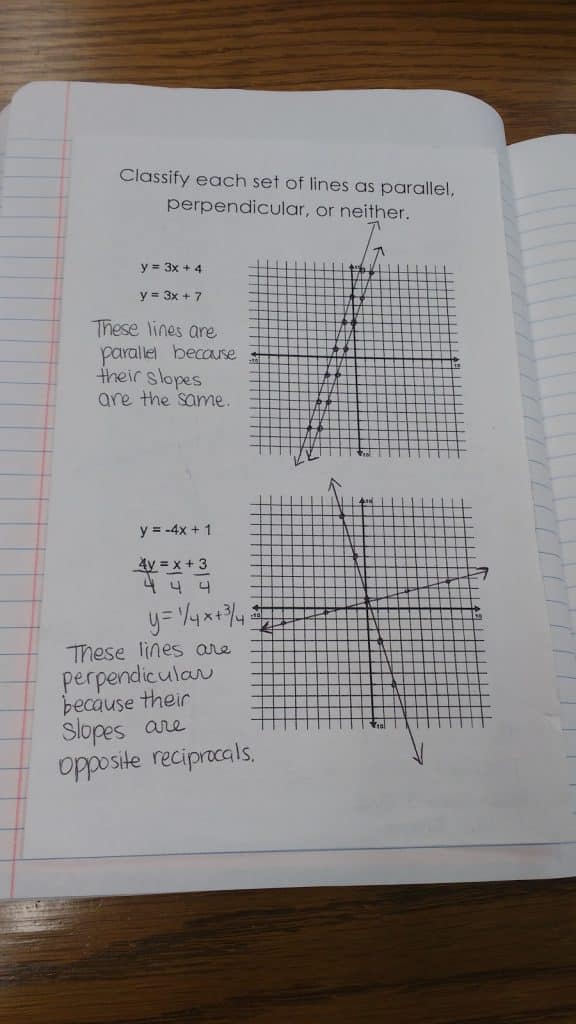 Classify each set of lines as parallel,
perpendicular, or neither.
y = 3x + 4
y = 3x + 7
These lines are
parallel because
their slopes
are the same.
y = -4x + 1
4y = x + 3
4 4 4
y = 1/4 x + 3/4
These lines are
perpendicular
because their
slopes are
opposite reciprocals.